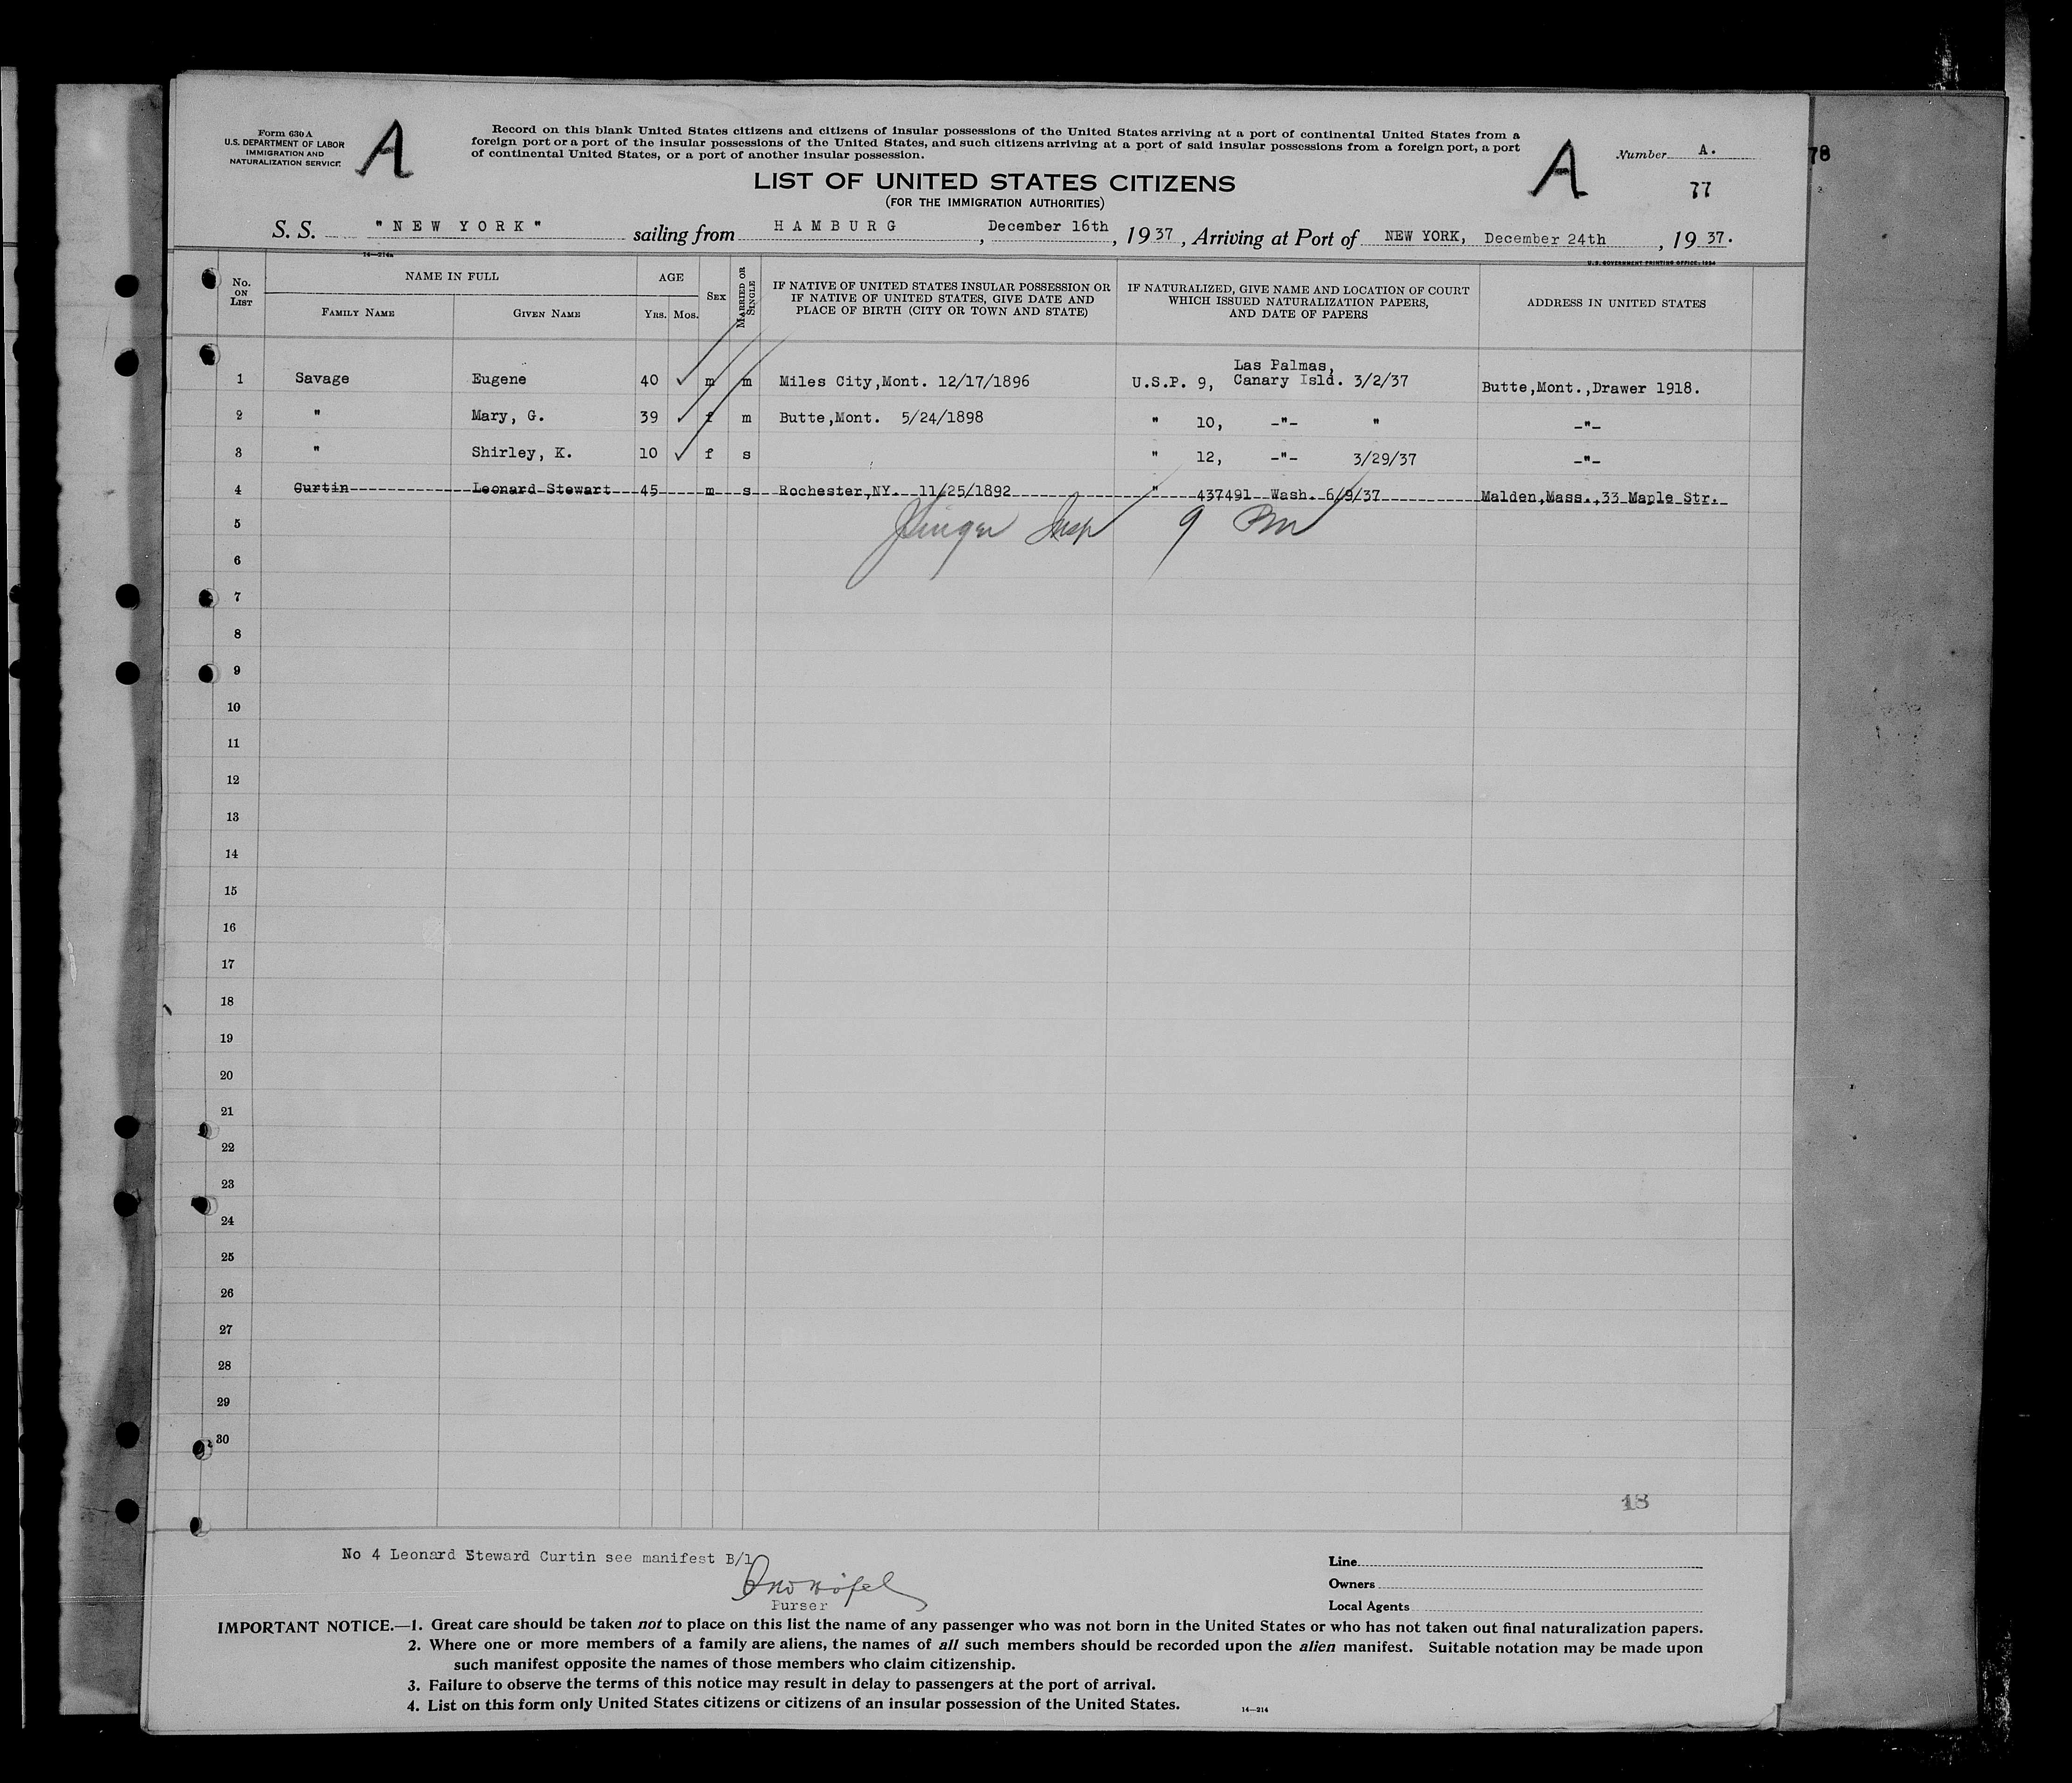 Form 630 A
U.S. DEPARTMENT OF LABOR
IMMIGRATION AND
NATURALIZATION SERVICE
A
Record on this blank United States citizens and citizens of insular possessions of the United States arriving at a port of continental United States from a
foreign port or a port of the insular possessions of the United States, and such citizens arriving at a port of said insular possessions from a foreign port, a port
of continental United States, or a port of another insular possession.
A
Number A.
78
77
LIST OF UNITED STATES CITIZENS
(FOR THE IMMIGRATION AUTHORITIES)
S. S. "NEW YORK" sailing from HAMBURG, December 16th, 1937, Arriving at Port of NEW YORK, December 24th, 1937.
14—214a
U.S. GOVERNMENT PRINTING OFFICE: 1934
No. ON LIST
NAME IN FULL
FAMILY NAME
GIVEN NAME
AGE
YRS. MOS.
SEX
MARRIED OR SINGLE
IF NATIVE OF UNITED STATES INSULAR POSSESSION OR
IF NATIVE OF UNITED STATES, GIVE DATE AND
PLACE OF BIRTH (CITY OR TOWN AND STATE)
IF NATURALIZED, GIVE NAME AND LOCATION OF COURT
WHICH ISSUED NATURALIZATION PAPERS,
AND DATE OF PAPERS
ADDRESS IN UNITED STATES
1 Savage Eugene 40 ✓ m m Miles City,Mont. 12/17/1896 U.S.P. 9, Las Palmas, Canary Isld. 3/2/37 Butte,Mont.,Drawer 1918.
2 " Mary, G. 39 ✓ f m Butte,Mont. 5/24/1898 " 10, -"- " -"-
3 " Shirley, K. 10 ✓ f s " 12, -"- 3/29/37 -"-
4 Curtin Leonard Stewart 45 m s Rochester,NY. 11/25/1892 " 437491 Wash. 6/9/37 Malden,Mass.,33 Maple Str.
5 Insp 9
6
7
8
9
10
11
12
13
14
15
16
17
18
19
20
21
22
23
24
25
26
27
28
29
30
18
No 4 Leonard Steward Curtin see manifest B/1
Purser
Line
Owners
Local Agents
IMPORTANT NOTICE.—1. Great care should be taken not to place on this list the name of any passenger who was not born in the United States or who has not taken out final naturalization papers.
2. Where one or more members of a family are aliens, the names of all such members should be recorded upon the alien manifest. Suitable notation may be made upon
such manifest opposite the names of those members who claim citizenship.
3. Failure to observe the terms of this notice may result in delay to passengers at the port of arrival.
4. List on this form only United States citizens or citizens of an insular possession of the United States.
14—214